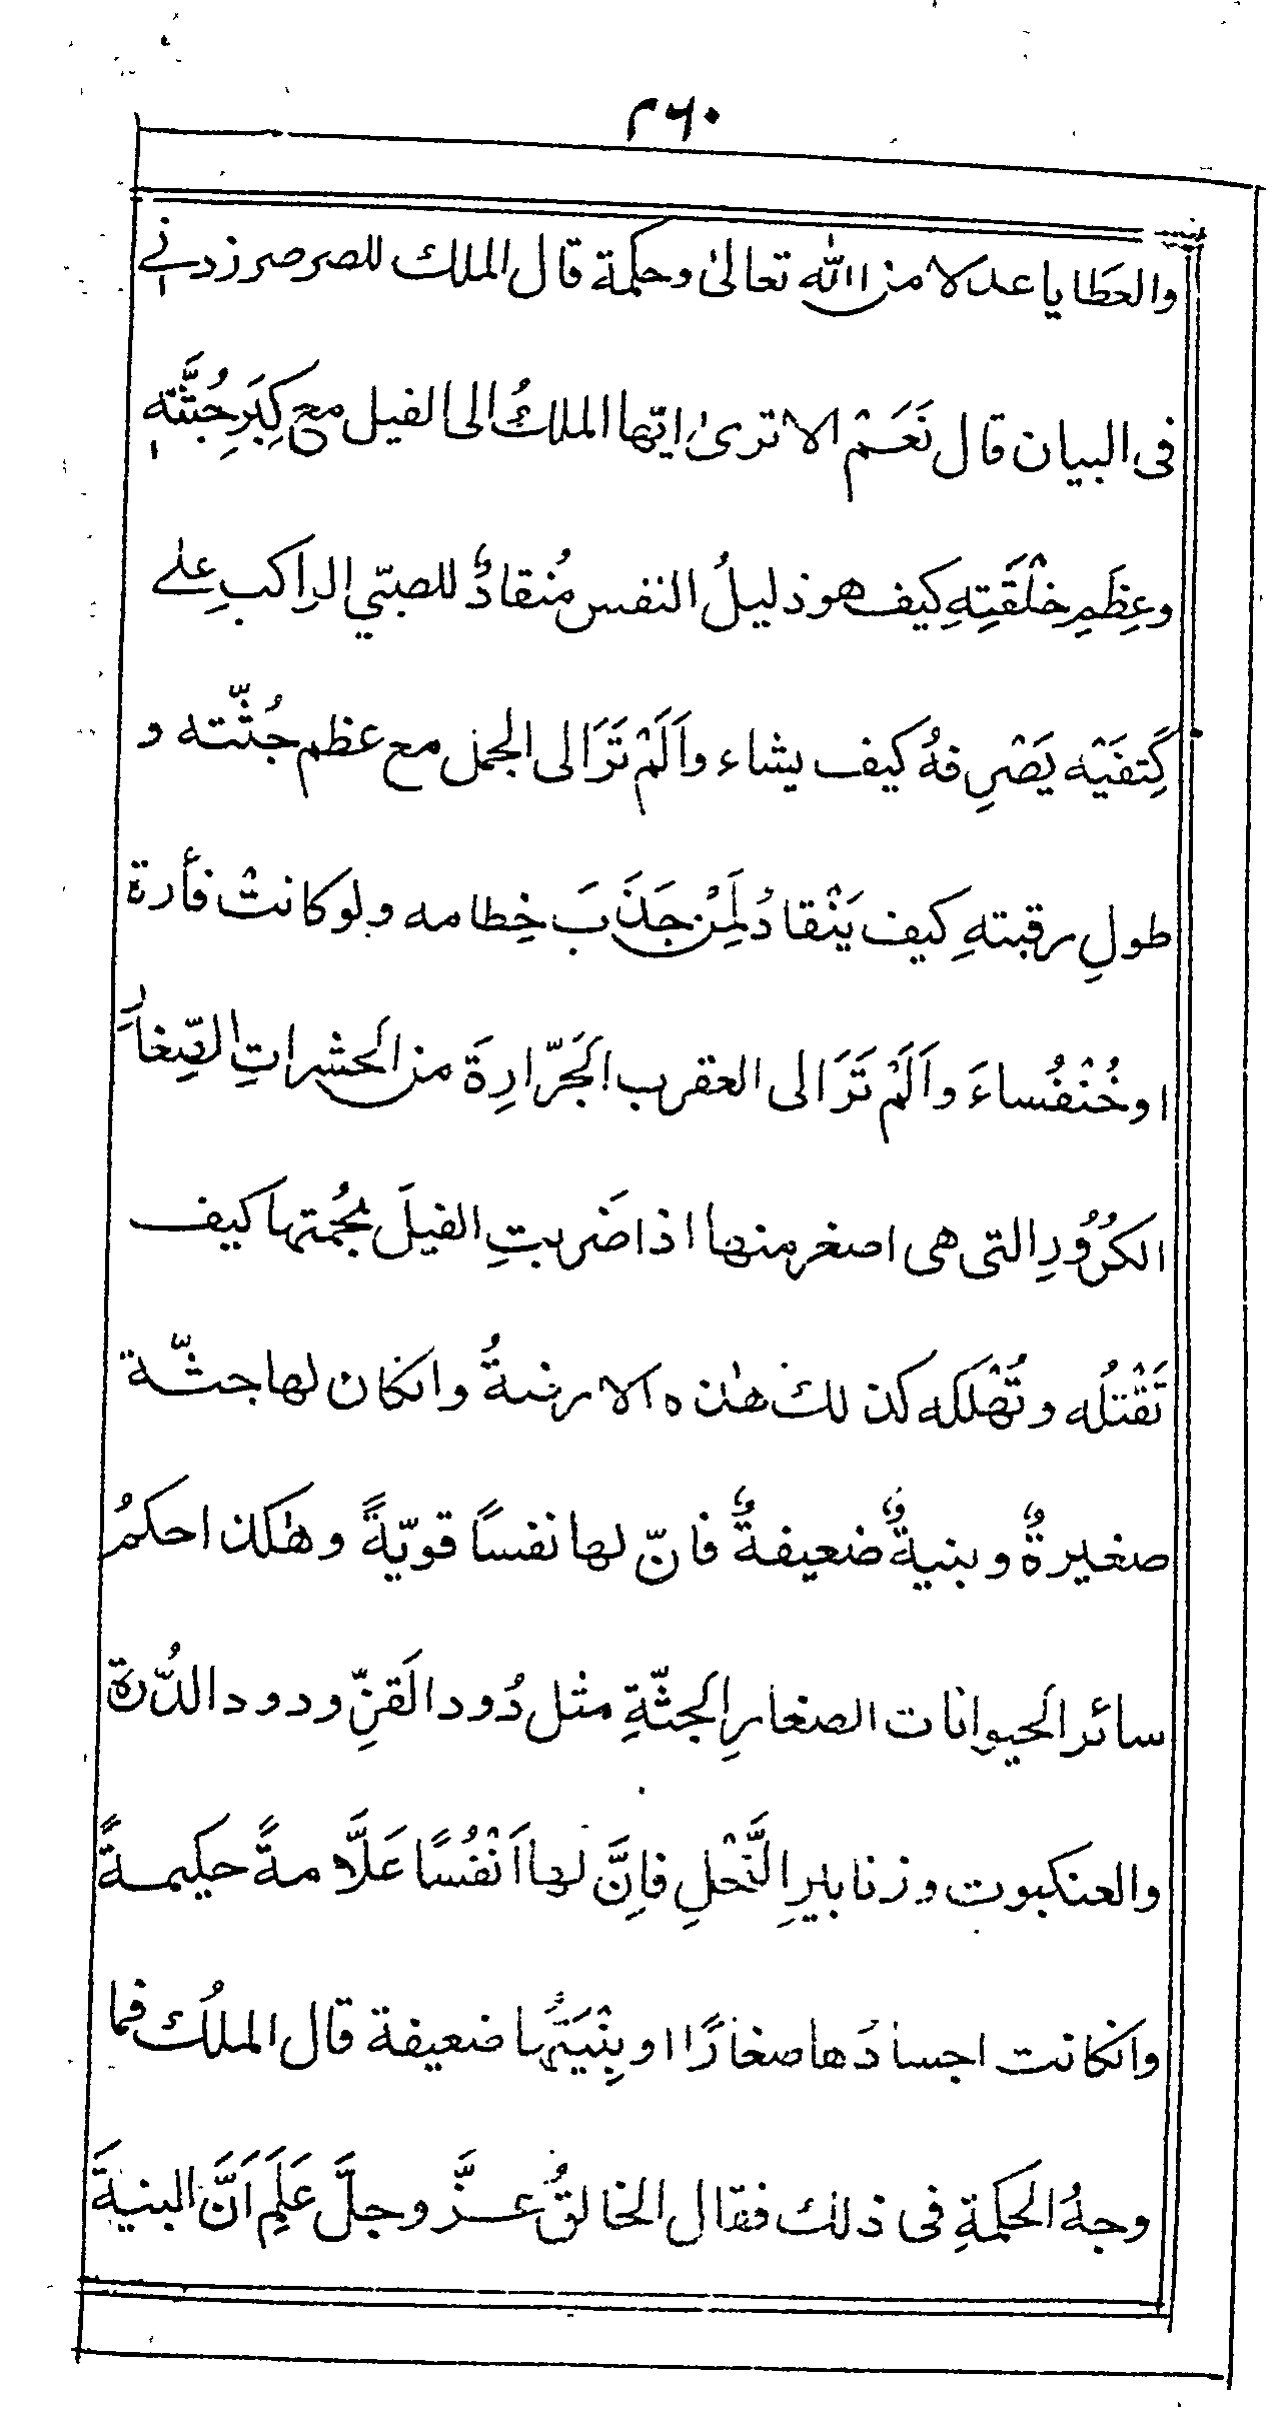 ٣٦٠
والعَطايا عدلا من الله تعالىٰ وحكمة قال الملك للصرصر زدني
فى البيان قال نَعَمْ الا ترىٰ ايّها الملكُ الى الفيل مع كِبَرِ جُثَّتهٖ
وعِظَمِ خلْقَتِهِ كيف هو ذليلُ النفس مُنقادٌ للصبّي الراكبِ علٰے
كَِتفَيْه يَصْرِفهُ كيف يشاء واَلَمْ تَرَ الى الجمل مع عظم جُثّته و
طولِ رقبتهِ كيف يَنْقادُ لَِمَنْ جَذَبَ خِطامه ولو كانتْ فأرة
او خُنْفُساءَ واَلَمْ تَرَ الى العقرب الجَرّارِةَ من الحشراتِ الصِّغارِ
الكُرُوْدِ التى هى اصغر منها اذا ضَربتِ الفيلَ بحُمتها كيف
تَقْتلُه وتُهْلكه كذلك هٰذه الارضةُ وانكان لها جثّة
صغيرةٌ وبنيةٌ ضعيفةٌ فانّ لها نفسًا قويّةً وهٰكذا حكمُ
سائر الحيوانات الصغارِ الجثّةِ مثل دُود القزِّ ودود الدُّرة
والعنكبوت وزنابيرِ النَّحْلِ فاِنَّ لها اَنْفُسًا عَلَّامةً حكيمةً
وانكانت اجسادُها صغارًا اوبِنْيَتُها ضعيفة قال الملُك فما
وجهُ الحكمةِ فى ذلك فقال الخالقُ عزَّ وجلَّ عَلِمَ اَنَّ البنيةَ